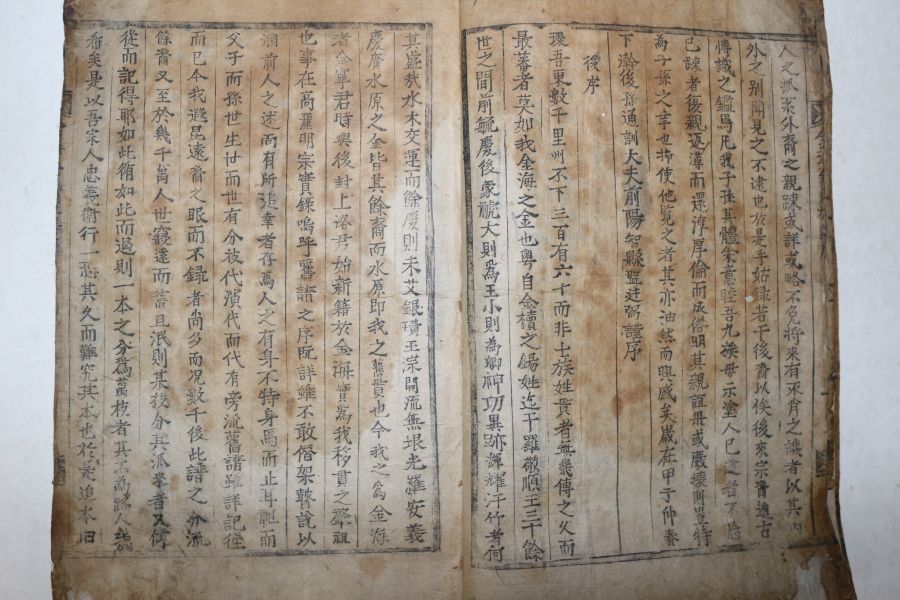 人之派系外裔之親踈或詳或略不免將來有採肯之譏者以其內
外之别聞見之不逮也於是乎姑録若干後裔以俟後來宗裔通古
傳識之鑑焉凡我子孫其體宗意睦吾九族毋示塗人已遠者不忘
已踈者復親返漓而還淳厚倫而成俗明其親誼毋或廢壞所豈特
為子孫之幸也抑使他覧之者其亦油然而興感矣歲在甲子仲春
下澣後孫通訓大夫前陽智縣監廷弼謹序
後序
環吾東數千里州不下三百有六十而非士族姓貴者無幾傳之久而
最蕃者莫如我金海之金也粤自金櫝之錫姓迄于羅敬順王三千餘
世之間前毓慶後蒙號大則爲王小則為卿神功異跡輝耀汗竹者何
其盛哉水木交運而餘慶則未艾銀璜玉宗開流無垠光羅安義
慶廣水原之金皆其餘裔而水原即我之舊貫也今我之爲金海
者金寧君時興後封上洛君始新籍於金海實爲我移貫之鼻祖
也事在高麗明宗實錄嗚呼舊譜之序旣詳雖不敢僭架贅說以
溷前人之述而有所追幸者存焉人之有身不特身焉而止耳祖而
父子而孫世生世而世有分被代演代而代有旁流舊譜雖詳記徃
而已今我遐昆遠裔之眼而不録者尚多而况數千後此譜之分流
餘裔又至於幾千萬人世寢遠而蓄且泯則某孩分其派某者又傳
從而記得耶如此循如此而過則一本之分爲萬枝者其不為路人
希矣是以吾宗人忠義衛行一恐其久而難究其本也於是追本旧